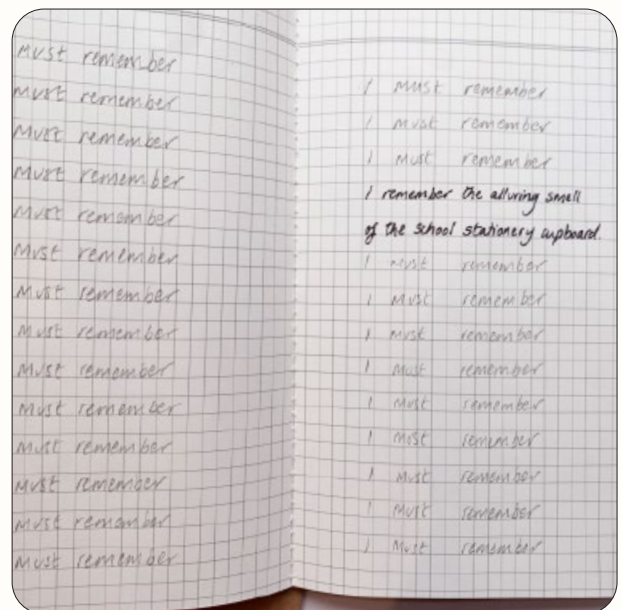 Must remember
Must remember
Must remember
Must remember
Must remember
Must remember
Must remember
Must remember
Must remember
Must remember
Must remember
Must remember
Must remember
Must remember
I must remember
I must remember
I must remember
I remember the alluring smell
of the school stationery cupboard.
I must remember
I must remember
I must remember
I must remember
I must remember
I must remember
I must remember
I must remember
I must remember